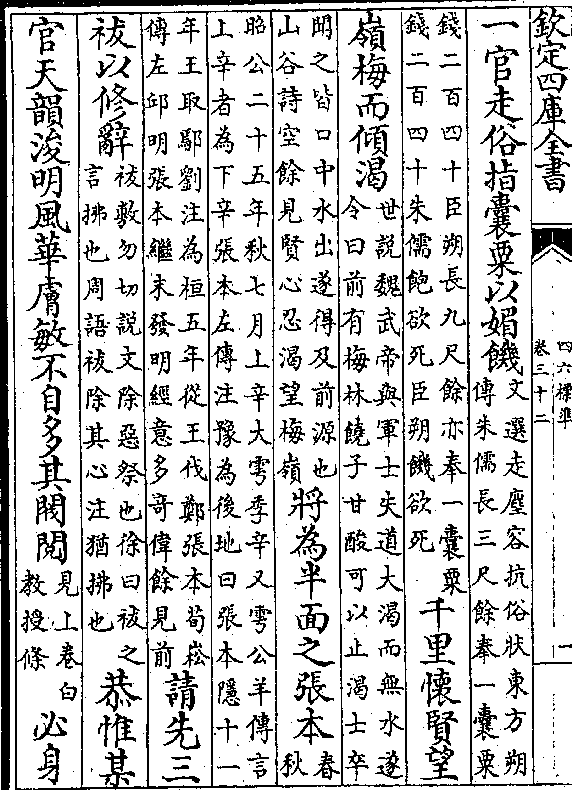 欽定四庫全書
四六標準
卷三十二
一
一官走俗指囊粟以媚饑文選走塵容抗俗狀東方朔
傳朱儒長三尺餘奉一囊粟
錢二百四十臣朔長九尺餘亦奉一囊粟
錢二百四十朱儒飽欲死臣朔饑欲死千里懷賢望
嶺梅而傾渴世說魏武帝與軍士失道大渴而無水遂
令曰前有梅林饒子甘酸可以止渴士卒
聞之皆口中水出遂得及前源也
山谷詩空餘見賢心忍渴望梅嶺將為半面之張本春
秋
昭公二十五年秋七月上辛大雩季辛又雩公羊傳言
上辛者為下辛張本左傳注豫為後地曰張本隱十一
年王取鄔劉注為桓五年從王伐鄭張本荀崧
傳左邱明張本繼末發明經意多奇偉餘見前請先三
祓以修辭祓敷勿切說文除惡祭也徐曰祓之
言拂也周語祓除其心注猶拂也恭惟某
官天韻浚明風華膚敏不自多其閥閱見上卷白
教授條必身